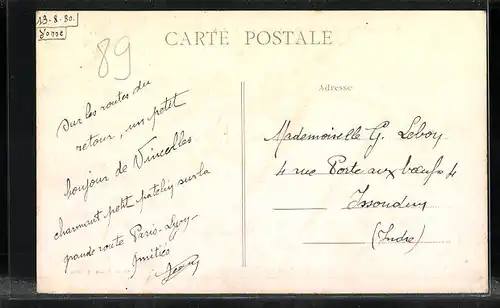 13-8-30.
Yonne
89
CARTE POSTALE
Sur les routes du
retour, un petit
bonjour de Vincelles
charmant petit patelin sur la
grande route Paris-Lyon-
Amitiés
Adresse
Mademoiselle G. Leboy
4 rue Porte aux boeufs 4
Issoudun
(Indre)